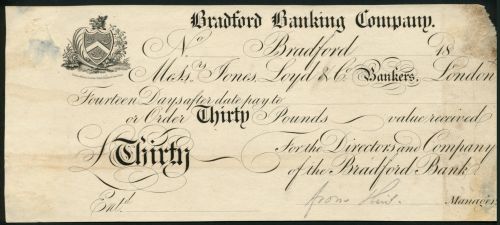 Bradford Banking Company.
No Bradford 18
Messrs Jones, Loyd & Co Bankers, London
Fourteen Days after date pay to
or Order Thirty Pounds value received
£ Thirty For the Directors and Company
of the Bradford Bank
Entd. Manager